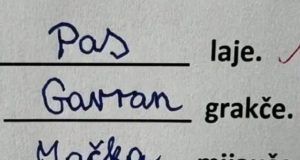 Pas laje.
Gavran grakče.
Mačka